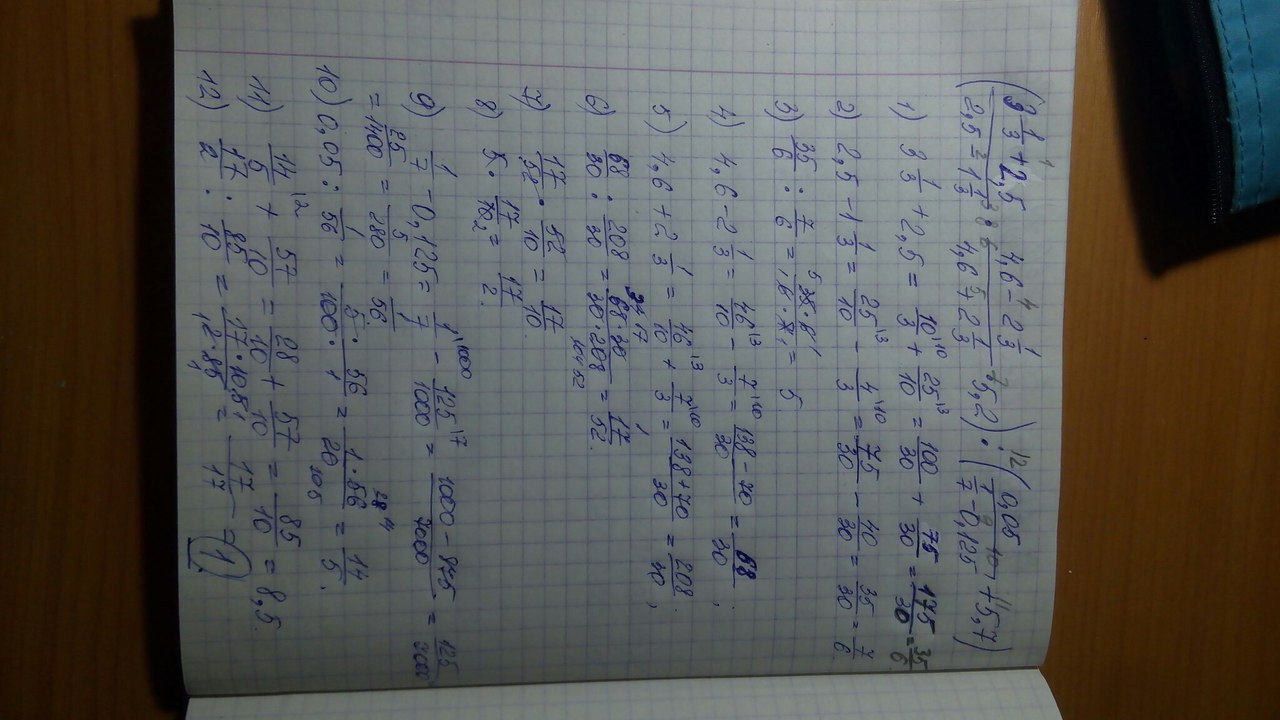 (3 1/3 + 2,5 / 2,5 - 1 1/3 : 4,6 - 2 1/3 / 4,6 + 2 1/3 · 5,2) : (0,05 / 1/7 - 0,125 + 5,7)
1) 3 1/3 + 2,5 = 10/3 + 25/10 = 100/30 + 75/30 = 175/30 = 35/6
2) 2,5 - 1 1/3 = 25/10 - 4/3 = 75/30 - 40/30 = 35/30 = 7/6.
3) 35/6 : 7/6 = 35·6/6·7 = 5.
4) 4,6 - 2 1/3 = 46/10 - 7/3 = 138-70/30 = 68/30;
5) 4,6 + 2 1/3 = 46/10 + 7/3 = 138+70/30 = 208/30;
6) 68/30 : 208/30 = 68·30/30·208 = 17/52.
7) 17/52 · 52/10 = 17/10
8) 5 · 17/10 = 17/2.
9) 1/7 - 0,125 = 1/7 - 125/1000 = 1000-875/7000 = 125/7000
= 25/1400 = 5/280 = 1/56
10) 0,05 : 1/56 = 5/100 · 56/1 = 1·56/20 = 14/5.
11) 14/5 + 57/10 = 28/10 + 57/10 = 85/10 = 8,5.
12) 17/2 : 85/10 = 17·10/2·85 = 17/17 = 1